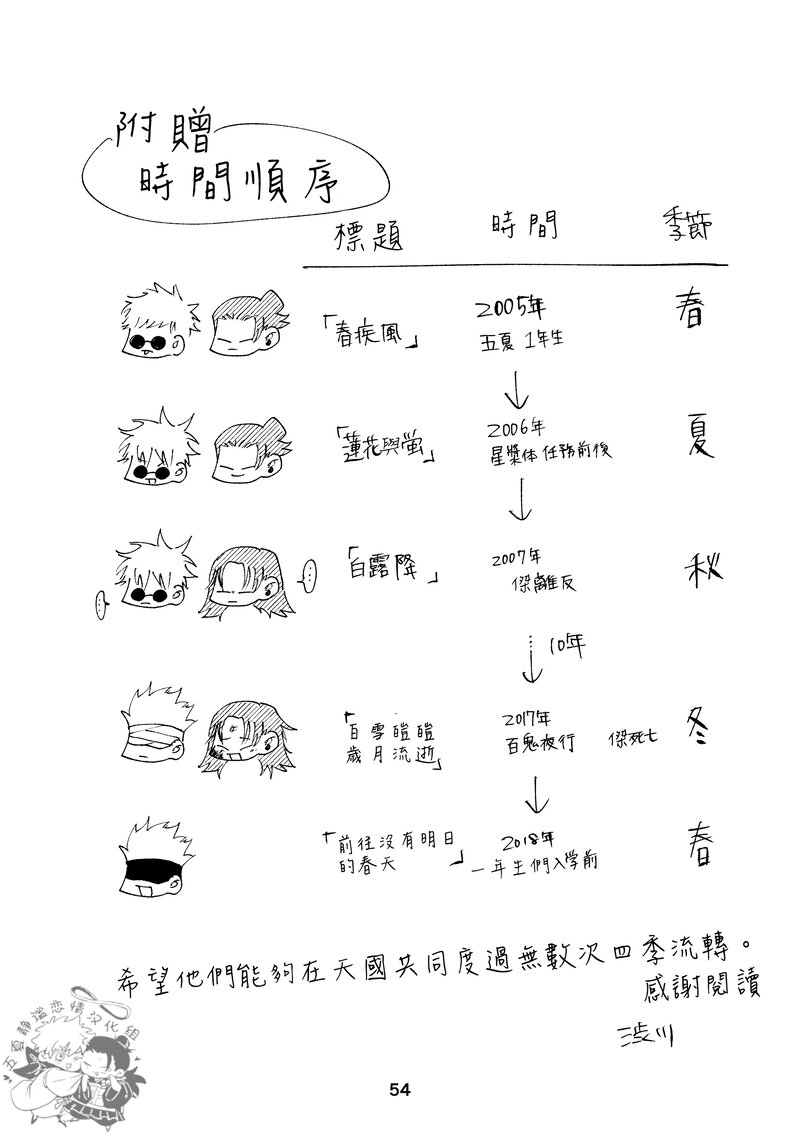 附贈
時間順序
標題 時間 季節
「春疾風」 2005年 春
五夏 1年生
「蓮花與螢」 2006年 夏
星漿体 任務前後
「白露降」 2007年 秋
傑離反
10年
「白雪皚皚 2017年 冬
歲月流逝」 百鬼夜行 傑死亡
「前往沒有明日 2018年 春
的春天」 一年生們入學前
希望他們能夠在天國共同度過無數次四季流轉。
感謝閱讀
渋川
五夏靜谧恋情汉化组
54